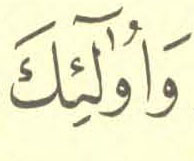 وَأُو۟لَـٰٓئِكَ